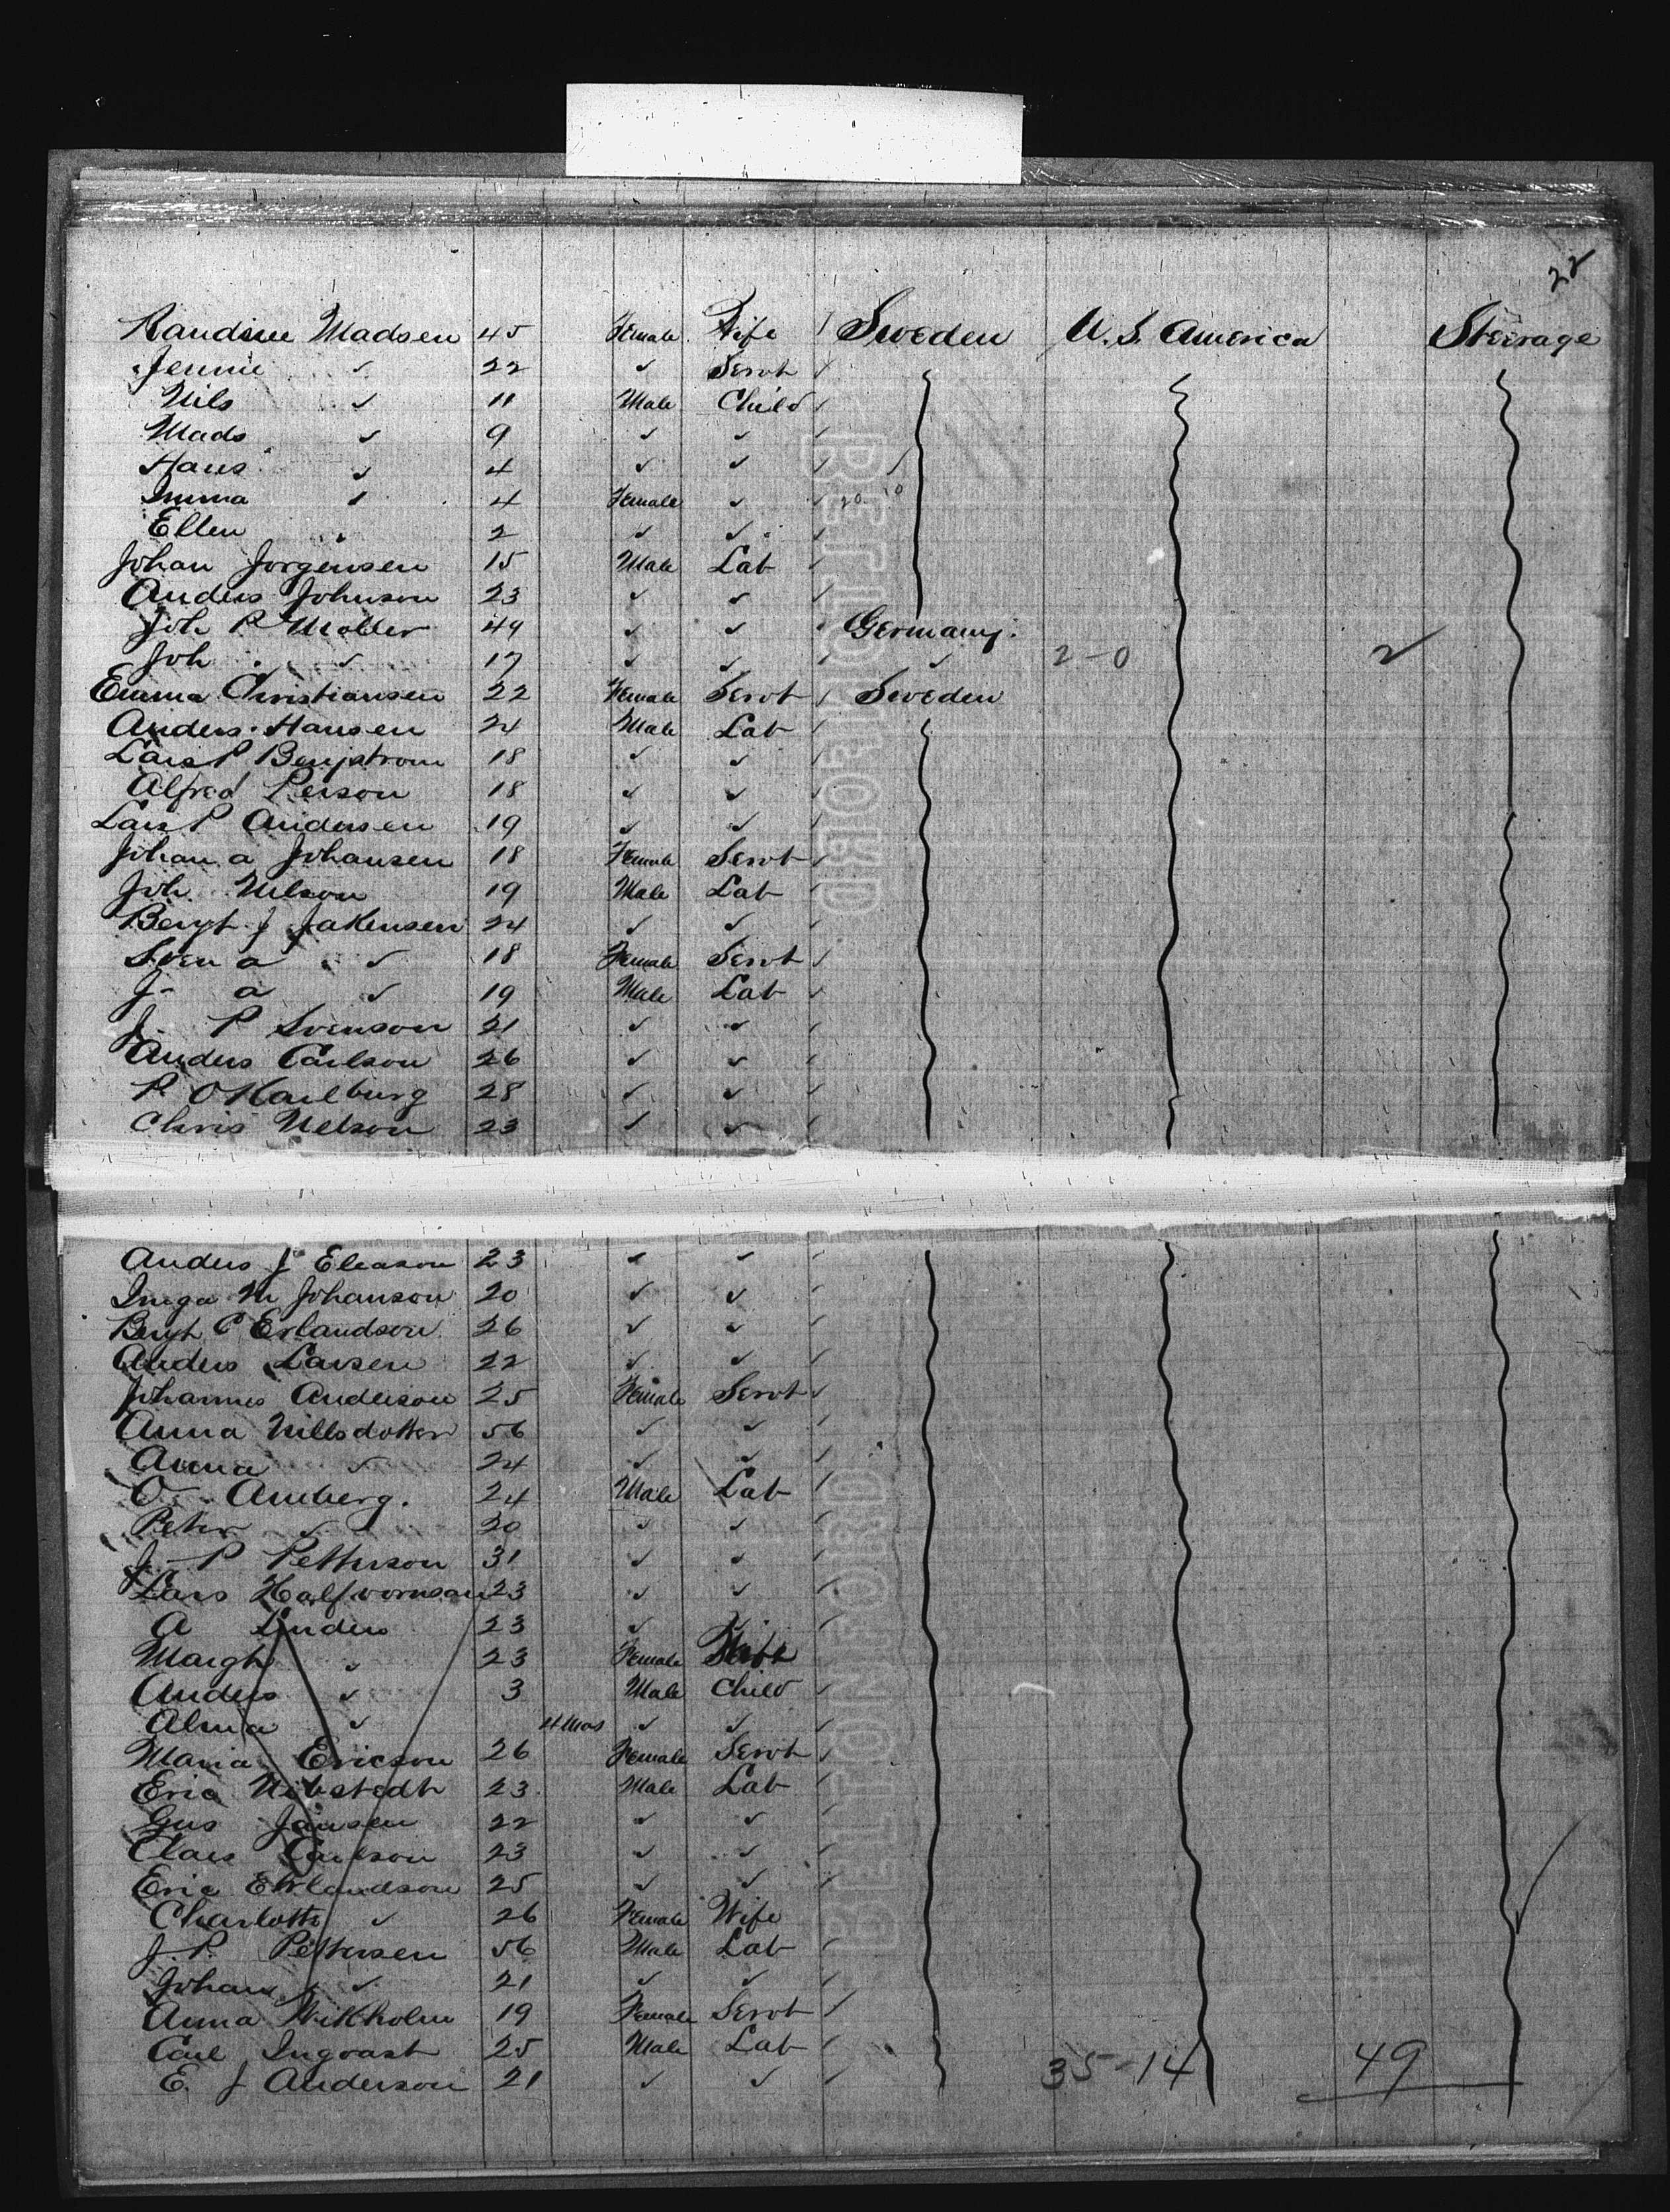 22
Randine Madsen 45 Female Wife / Sweden U.S. America Steerage
Jennie ✓ 22 ✓ Servt /
Nils ✓ 11 Male Child /
Mads ✓ 9 ✓ ✓ /
Hans ✓ 4 ✓ ✓ /
Emma ✓ 4 Female ✓ /
Ellen 2 ✓ ✓ /
Johan Jorgensen 15 Male Lab /
Anders Johnson 23 ✓ ✓ /
Joh P Moller 49 ✓ ✓ Germany
Joh ✓ 17 ✓ ✓ / ✓ 2-0 2
Emma Christiansen 22 Female Servt / Sweden
Anders Hansen 24 Male Lab /
Lars P Bengstrom 18 ✓ ✓ /
Alfred Person 18 ✓ ✓ /
Lars P Andersen 19 ✓ ✓ /
Johan a Johansen 18 Female Servt /
Joh Nelson 19 Male Lab /
Bengt J Jakensen 24 ✓ ✓ /
Sven a ✓ 18 Female Servt /
J- a ✓ 19 Male Lab ✓
J- P Svenson 21 ✓ ✓ /
Anders Carlson 26 ✓ ✓ /
P. O Karlburg 28 ✓ ✓ /
Chris Nelson 23 ✓ ✓ /
Anders J Eleason 23 ✓ ✓ /
Inga M Johanson 20 ✓ ✓ /
Bengt P Erlandson 26 ✓ ✓ /
Anders Larsen 22 ✓ ✓ /
Johannes Anderson 25 Female Servt ✓
Anna Nillsdotter 56 ✓ ✓ /
Anna ✓ 24 ✓ ✓ /
O- Amberg. 24 Male Lab /
Peter ✓ 20 ✓ ✓ /
J- P Petterson 31 ✓ ✓ /
Lars Halfvornson 23 ✓ ✓ /
A Linders 23 ✓ ✓ /
Margh ✓ 23 Female Wife
Anders ✓ 3 Male Child ✓
Alma ✓ 4 Mos ✓ ✓ /
Maria Ericson 26 Female Servt /
Eric 23 Male Lab /
Gus Jansen 22 ✓ ✓ /
Clars Carlson 23 ✓ ✓ /
Eric Ehrlandson 25 ✓ ✓ /
Charlotte ✓ 26 Female Wife
J. P. Pettersen 56 Male Lab /
Johan ✓ 21 ✓ ✓ /
Anna Wikholm 19 Female Servt /
Carl Ingvast 25 Male Lab /
E. J Anderson 21 ✓ ✓ / 35-14 49